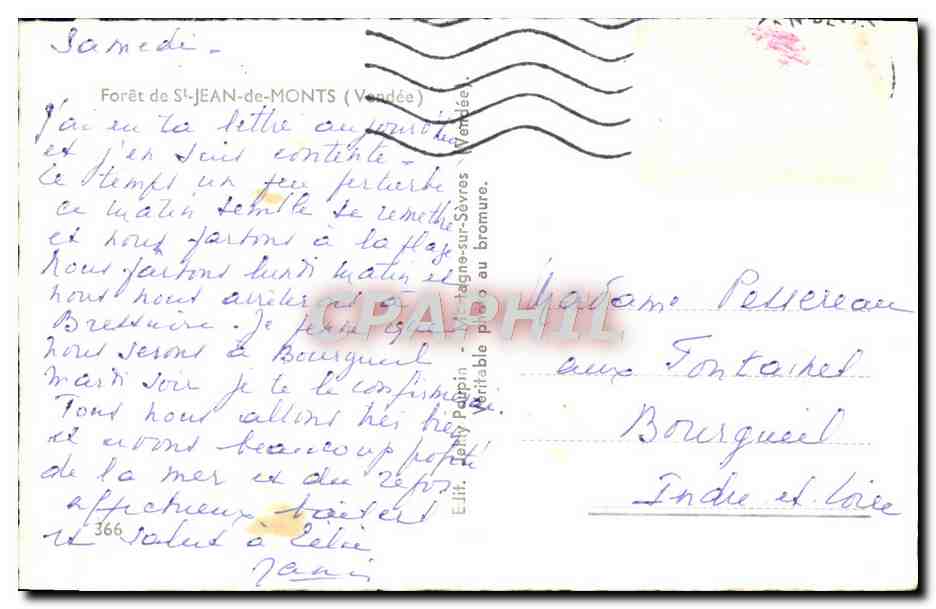 Samedi -
Forêt de St-JEAN-de-MONTS (Vendée)
j'ai eu ta lettre aujourd'hui
et j'en suis contente -
Le temps un peu perturbé
ce matin semble se remettre
et nous partons à la plage
Nous partons lundi matin et
nous nous arrêterons à
Bressuire. Je pense que
nous serons à Bourgueil
mardi soir je te le confirmerai.
Tous nous allons très bien
et avons beaucoup profité
de la mer et du repos
affectueux baisers
et salut à
366
Edit. Jehly Poupin - Mortagne-sur-Sèvres (Vendée).
Véritable photo au bromure.
CPARPHIL
Madame Pessereau
aux Fontaines
Bourgueil
Indre et Loire